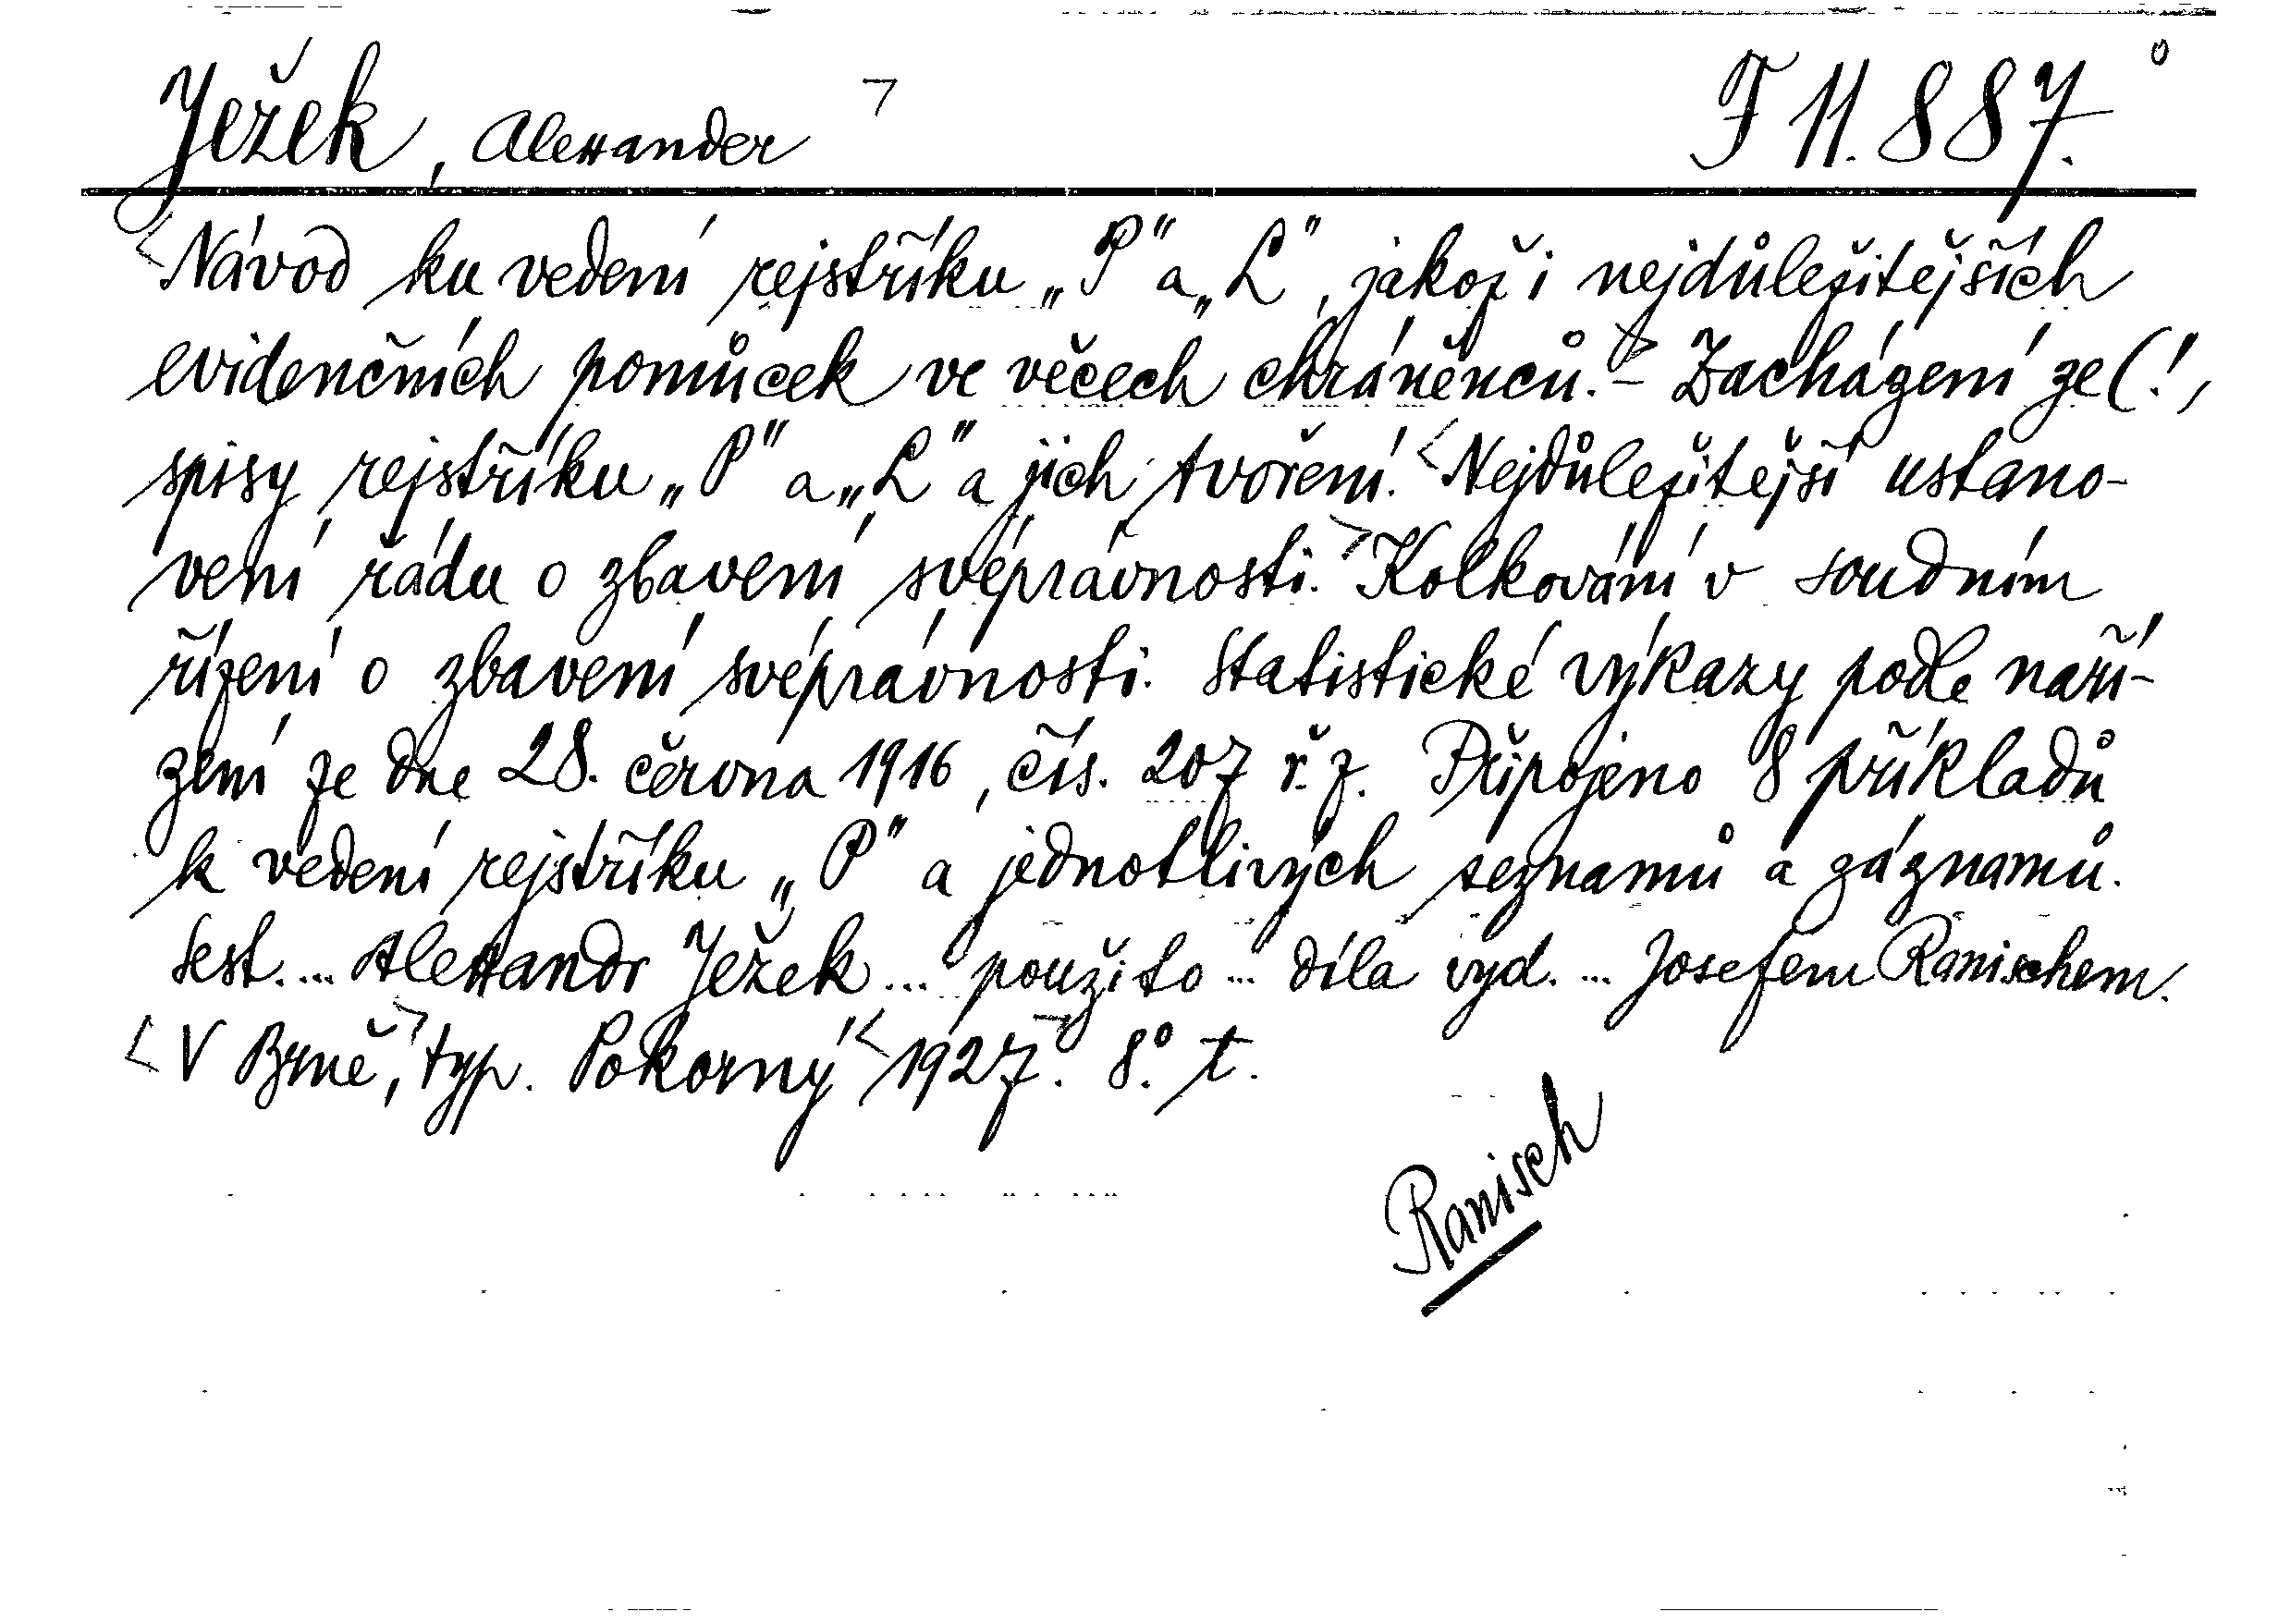 Ježek, Alexander F 11.887.
Návod ku vedení rejstříku „P" a „L", jakož i nejdůležitějších
evidenčních pomůcek ve věcech chráněnců. – Zacházení ze (!,
spisy rejstříku „P" a „L" a jich tvoření. Nejdůležitější ustano-
vení řádu o zbavení svéprávnosti. Kolkování v soudním
řízení o zbavení svéprávnosti. Statistické výkazy podle naří-
zení ze dne 28. června 1916, čís. 207 ř. z. Připojeno 8 příkladů
k vedení rejstříku „P" a jednotlivých seznamů a záznamů.
Sest. ... Alexandr Ježek ... použito ... díla vyd. ... Josefem Ranischem.
V Brně, typ. Pokorný 1927. 8° t.
Ranisch